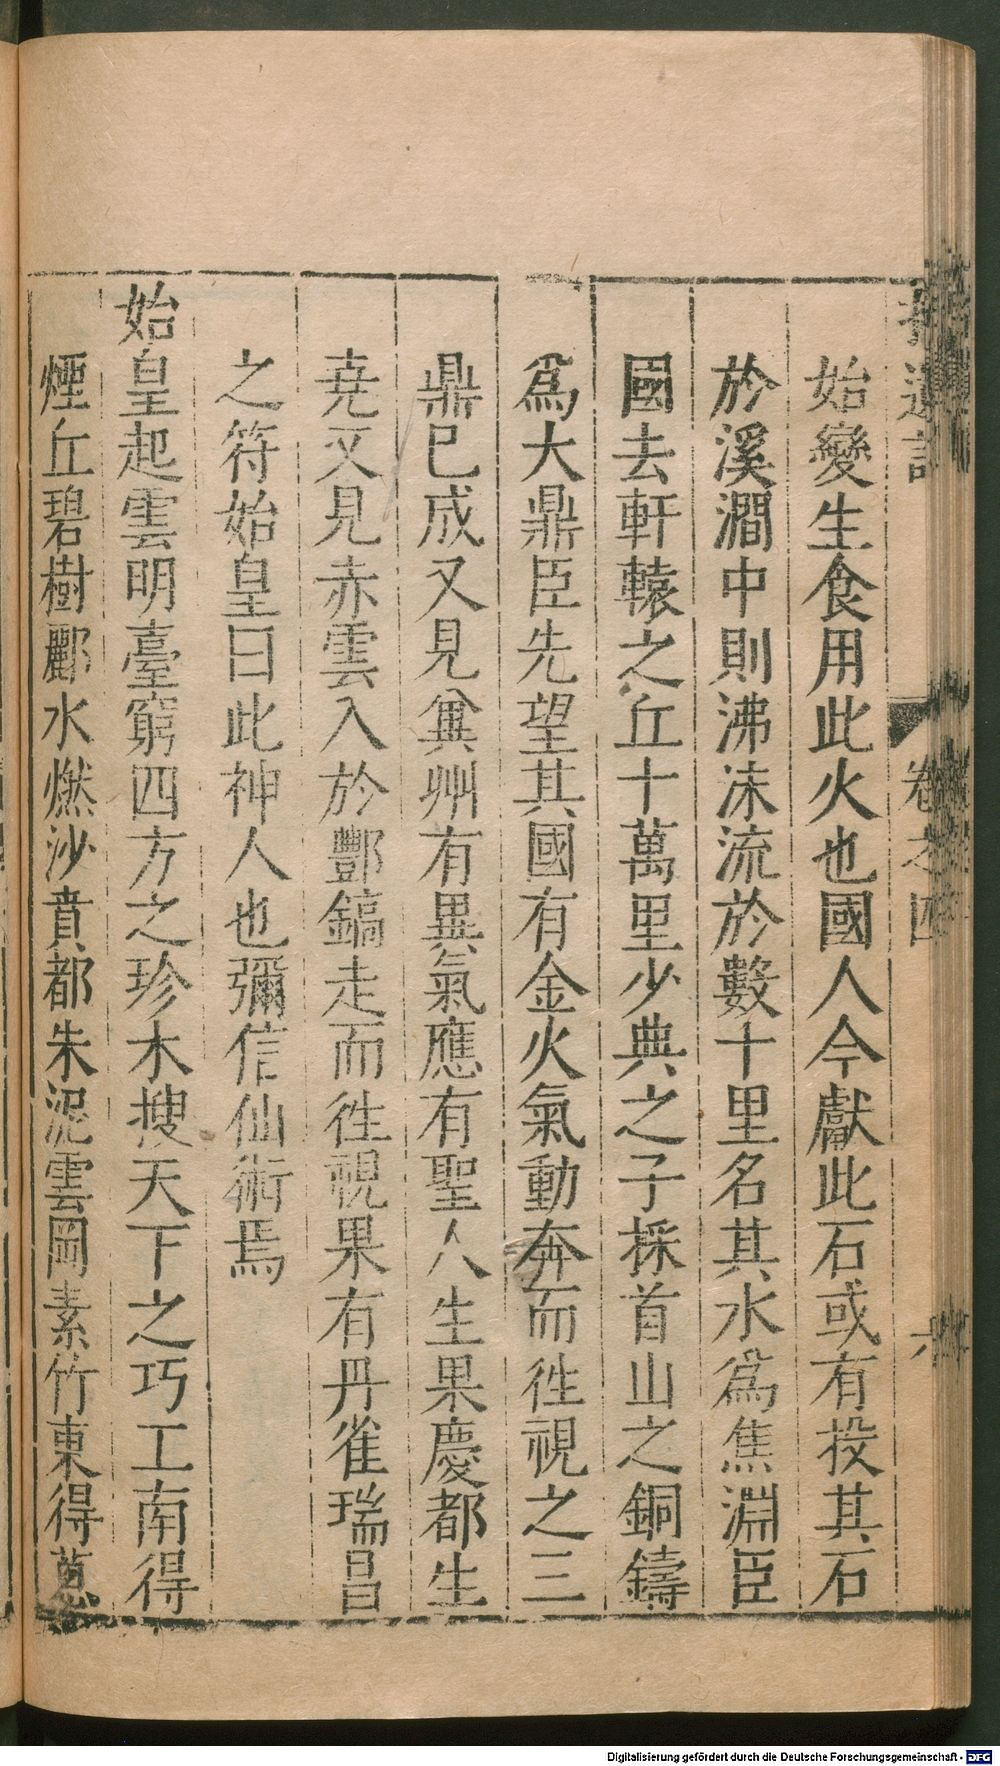 拾遺記 卷之四 六
始變生食用此火也國人今獻此石或有投其石
於溪澗中則沸沫流於數十里名其水爲焦淵臣
國去軒轅之丘十萬里少典之子採首山之銅鑄
爲大鼎臣先望其國有金火氣動奔而徃視之三
鼎已成又見兾州有異氣應有聖人生果慶都生
堯又見赤雲入於酆鎬走而徃視果有丹雀瑞昌
之符始皇曰此神人也彌信仙術焉
始皇起雲明臺窮四方之珍木搜天下之巧工南得
煙丘碧樹酈水燃沙賁都朱泥雲岡素竹東得蔥
Digitalisierung gefördert durch die Deutsche Forschungsgemeinschaft - DFG